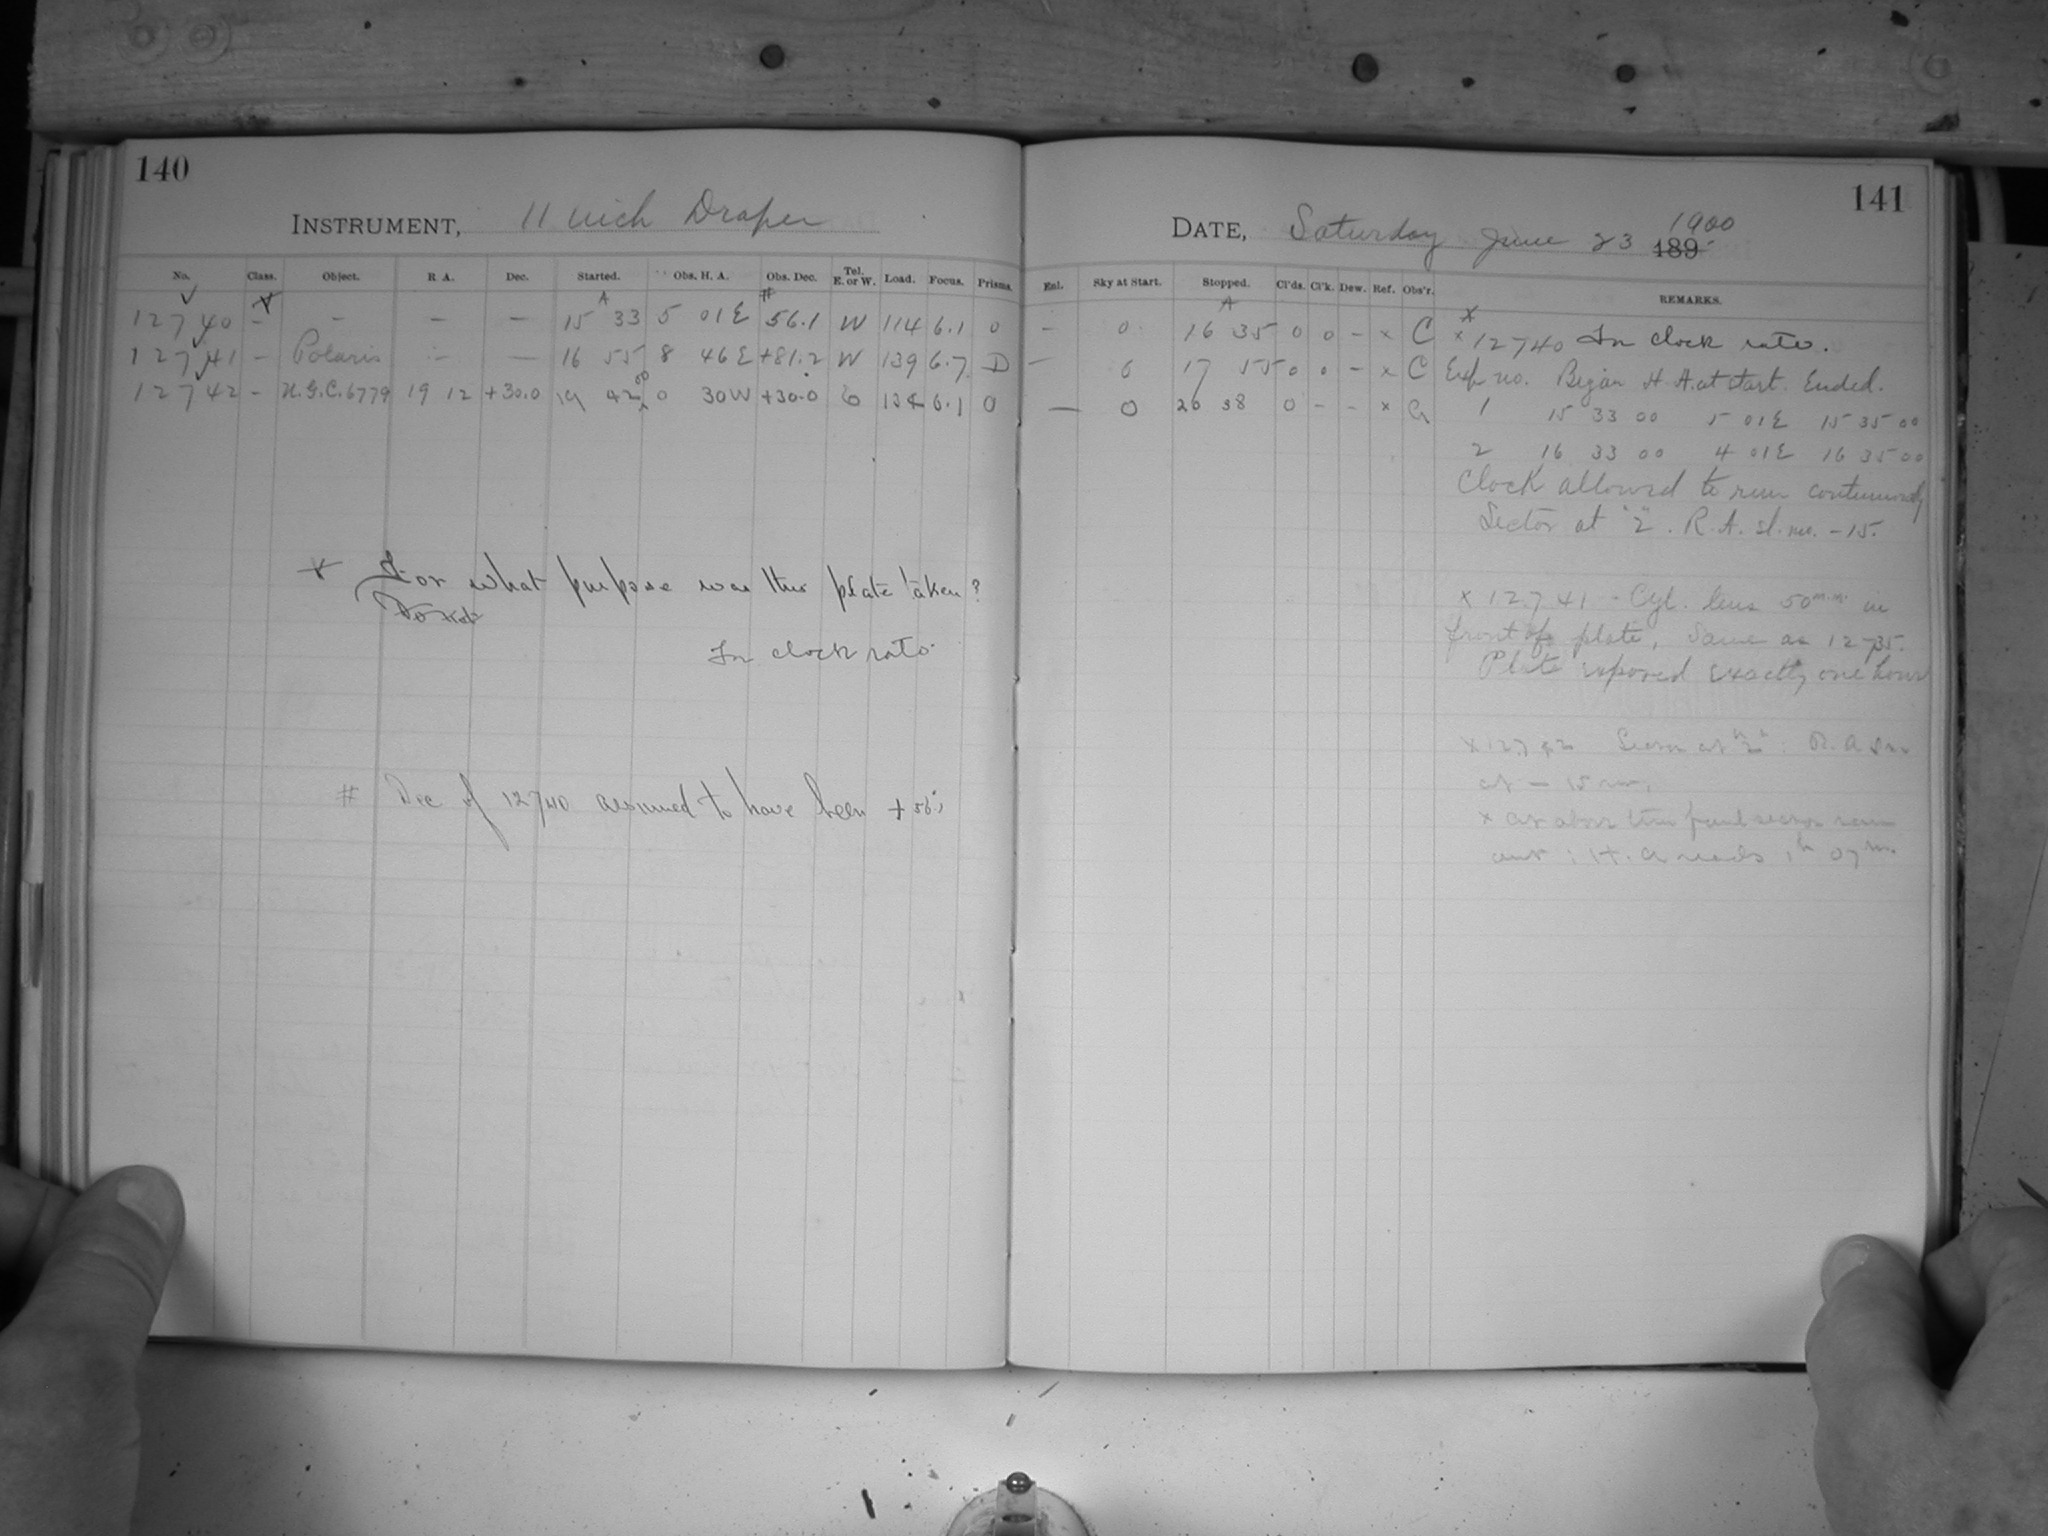 140
INSTRUMENT, 11 inch Draper
No. Class. Object. R A. Dec. Started. Obs. H. A. Obs. Dec. Tel. E. or W. Load. Focus. Prisms.
12740 - - - - 15 33 5 01 E 56.1 W 114 6.1 0
12741 - Polaris - - 16 55 8 46 E +81.2 W 139 6.7 D
12742 - N.G.C. 6779 19 12 +30.0 19 42 00 0 30 W +30.0 E 134 6.1 0
x For what purpose was this plate taken?
For clock rate.
# Dec of 12740 assumed to have been + 56.1
141
DATE, Saturday June 23 1900 189
Enl. Sky at Start. Stopped. Cl'ds. Cl'k. Dew. Ref. Obs'r. REMARKS.
- 0 16 35 0 0 - x C x 12740 For clock rate.
- 0 17 55 0 0 - x C Exp no. Began H. A. at start. Ended.
— 0 20 38 0 - - x G 1 15 33 00 5 01 E 15 35 00
2 16 33 00 4 01 E 16 35 00
Clock allowed to run continuously
Sector at "2". R.A. sl. mo. - 15.
x 12741 - Cyl. lens 50 m.m. in
front of plate, same as 12735.
Plate exposed exactly one hour
x 12742 Sector at "2": R. A. s m
at - 15 m.
x at above time found sector run
out: H. A reads 1h 07m.